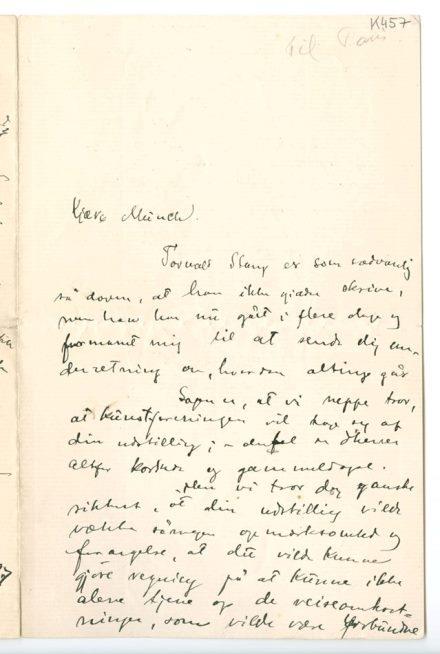 K457
Til Paris
Kjære Münch.
Torvald Stang er som sædvanlig
så doven, at han ikke gider skrive,
men han har nu gået i flere dage og
formanet mig til at sende dig un-
derretning om, hvordan alting går
Sagen er, at vi neppe tror,
at Kunstforeningen vil tage sig af
din udstilling; – er
altfor og gammeldags.
Men vi tror dog ganske
sikkert, at din udstilling vilde
vække såmegen opmærksomhed og
forargelse, at du vilde kunne
gjöre regning på at kunne ikke
alene tjene op de reiseomkost-
ninger, som vilde være forbundne